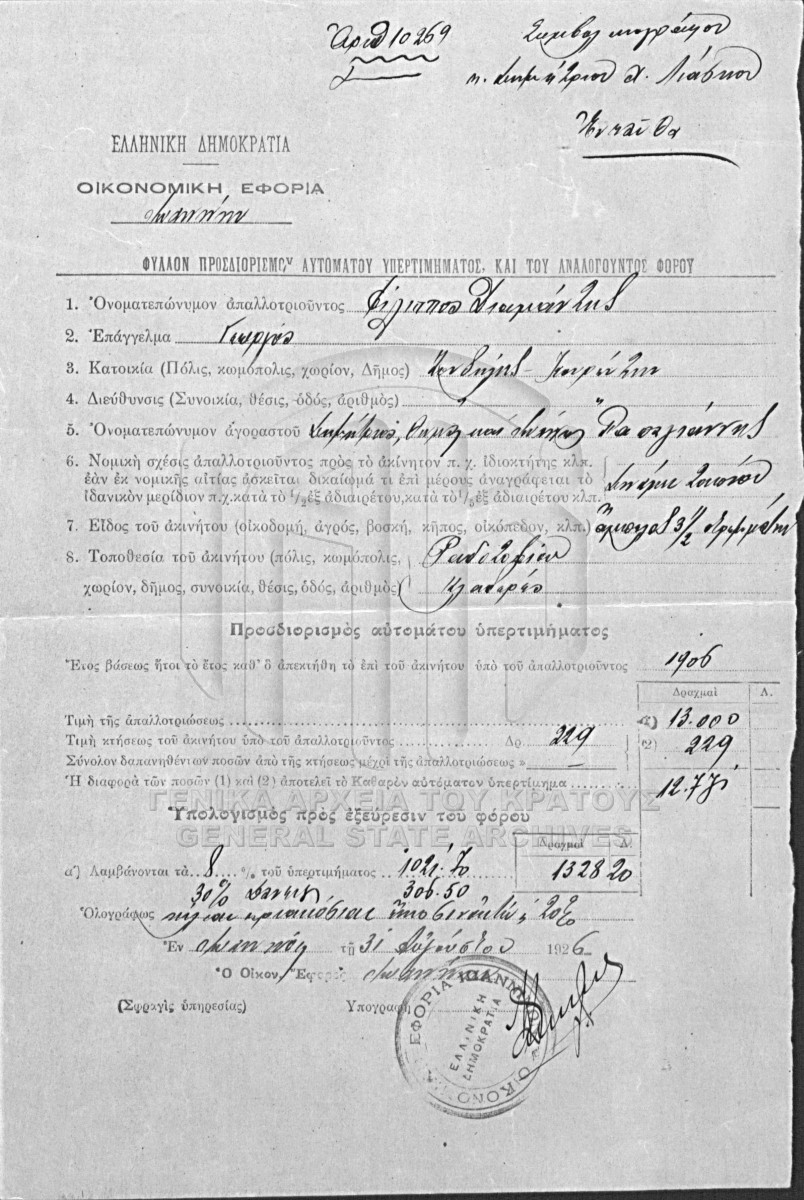 Ἀριθ 10269
Συμβολαιογράφον
κ. Δημήτριον Χ. Λιάσκον
Ἐνταῦθα
ΕΛΛΗΝΙΚΗ ΔΗΜΟΚΡΑΤΙΑ
ΟΙΚΟΝΟΜΙΚΗ ΕΦΟΡΙΑ
ΦΥΛΛΟΝ ΠΡΟΣΔΙΟΡΙΣΜΟΥ ΑΥΤΟΜΑΤΟΥ ΥΠΕΡΤΙΜΗΜΑΤΟΣ, ΚΑΙ ΤΟΥ ΑΝΑΛΟΓΟΥΝΤΟΣ ΦΟΡΟΥ
1. Ὀνοματεπώνυμον ἀπαλλοτριοῦντος Φίλιππος Διαμάντης
2. Ἐπάγγελμα Γεωργός
3. Κατοικία (Πόλις, κωμόπολις, χωρίον, Δῆμος)
4. Διεύθυνσις (Συνοικία, θέσις, ὁδός, ἀριθμὸς) " "
5. Ὀνοματεπώνυμον ἀγοραστοῦ Δημήτριος, καὶ Παπαγιάννης
6. Νομικὴ σχέσις ἀπαλλοτριοῦντος πρὸς τὸ ἀκίνητον π. χ. ἰδιοκτήτης κλπ.
ἐὰν ἐκ νομικῆς αἰτίας ἀσκεῖται δικαίωμά τι ἐπὶ μέρους ἀναγράφεται τὸ
ἰδανικὸν μερίδιον π.χ. κατὰ τὸ 1/2 ἐξ ἀδιαιρέτου, κατὰ τὸ 1/5 ἐξ ἀδιαιρέτου κλπ.
7. Εἶδος τοῦ ἀκινήτου (οἰκοδομή, ἀγρός, βοσκή, κῆπος, οἰκόπεδον, κλπ.) ἄμπελος 3 1/2 στρεμμάτων
8. Τοποθεσία τοῦ ἀκινήτου (πόλις, κωμόπολις, Ραδοτοβίου
χωρίον, δῆμος, συνοικία, θέσις, ὁδός, ἀριθμὸς)
Προσδιορισμὸς αὐτομάτου ὑπερτιμήματος
Ἔτος βάσεως ἤτοι τὸ ἔτος καθ' ὃ ἀπεκτήθη τὸ ἐπὶ τοῦ ἀκινήτου ὑπὸ τοῦ ἀπαλλοτριοῦντος 1906
Δραχμαὶ Λ.
Τιμὴ τῆς ἀπαλλοτριώσεως 1) 13.000
Τιμὴ κτήσεως τοῦ ἀκινήτου ὑπὸ τοῦ ἀπαλλοτριοῦντος Δρ. 229 (2) 229
Σύνολον δαπανηθέντων ποσῶν ἀπὸ τῆς κτήσεως μέχρι τῆς ἀπαλλοτριώσεως » —
Ἡ διαφορὰ τῶν ποσῶν (1) καὶ (2) ἀποτελεῖ τὸ Καθαρὸν αὐτόματον ὑπερτίμημα 12.771
ΓΕΝΙΚΑ ΑΡΧΕΙΑ ΤΟΥ ΚΡΑΤΟΥΣ
Ὑπολογισμὸς πρὸς ἐξεύρεσιν τοῦ φόρου
GENERAL STATE ARCHIVES
Δραχμαὶ Λ.
α') Λαμβάνονται τὰ 8 % τοῦ ὑπερτιμήματος 1021.70 1328 20
30% 306.50
Ὁλογράφως χίλιαι τριακόσιαι εἴκοσι ὀκτώ
Ἐν τῇ 31 Αὐγούστου 1926
Ὁ Οἰκον. Ἔφορος
(Σφραγὶς ὑπηρεσίας) Ὑπογραφὴ
ΕΛΛΗΝΙΚΗ
ΔΗΜΟΚΡΑΤΙΑ